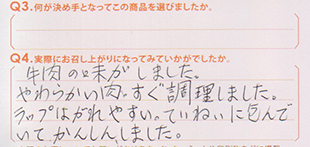 Q3.何が決め手となってこの商品を選びましたか。
Q4.実際にお召し上がりになってみていかがでしたか。
牛肉の味がしました。
やわらかい肉。すぐ調理しました。
ラップはがれやすい。ていねいに包んで
いてかんしんしました。